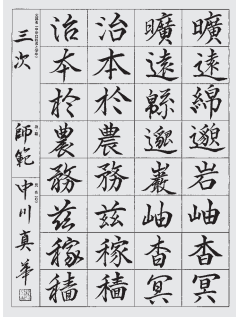 曠遠綿邈岩岫杳冥
曠遠緜邈巌岫杳冥
治本於農務茲稼穡
治本於農務茲稼穡
三次 師範 中川真華